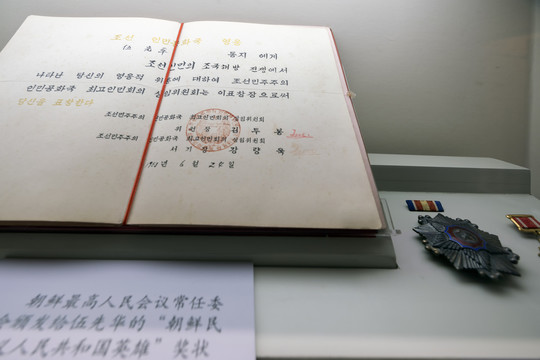 조선 인민공화국 영웅
동지 에게
조선인민의 조국해방 전쟁에서
나타난 당신의 영웅적 위훈에 대하여 조선민주주의
인민공화국 최고인민회의 상임위원회는 이표창장으로써
당신을 표창한다
조선민주주의 인민공화국 최고인민회의 상임위원회
위원장 김두봉
조선민주주의 인민공화국 최고인민회의 상임위원회
서기장 강량욱
년 6월 28일
朝鲜最高人民会议常任委
会颁发给伍先华的“朝鲜民
义人民共和国英雄”奖状